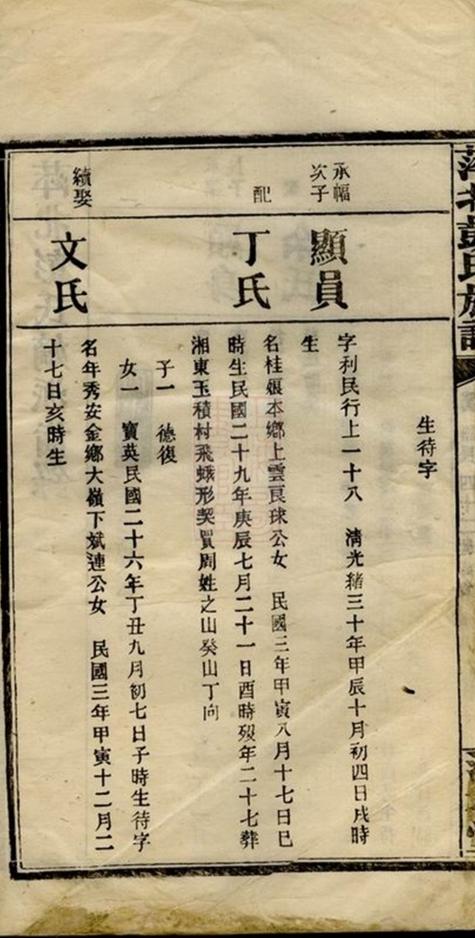 萍北彭氏族譜
生待字
承幅
次子
顯員
字利民行上一十八　清光緒三十年甲辰十月初四日戌時
生
配
丁氏
名桂銀本鄉上雲良球公女　民國三年甲寅八月十七日巳
時生民國二十九年庚辰七月二十一日酉時歿年二十七葬
湘東玉積村飛蛾形契買周姓之山癸山丁向
子一　德復
女一　寶英民國二十六年丁丑九月初七日子時生待字
續娶
文氏
名年秀安金鄉大嶺下斌連公女　民國三年甲寅十二月二
十七日亥時生